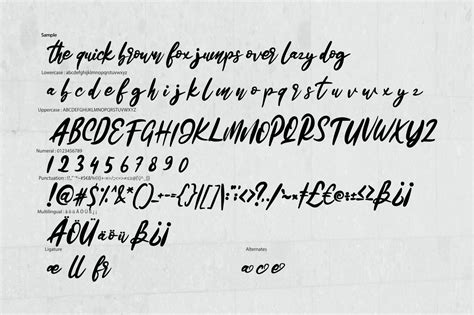 Sample
the quick brown fox jumps over lazy dog
Lowercase : abcdefghijklmnopqrstuvwxyz
a b c d e f g h i j k l m n o p q r s t u v w x y z
Uppercase : ABCDEFGHIJKLMNOPQRSTUVWXYZ
ABCDEFGHIJKLMNOPQRSTUVWXYZ
Numeral : 0123456789
1 2 3 4 5 6 7 8 9 0
Punctuation :
!@#$%^&*()_+-={}[]\|:;<>?,./~
Multilingual : ä ö ü Ä Ö Ü
ÄÖÜäöüß¡¿
Ligature Alternates
æ ll fr a c e